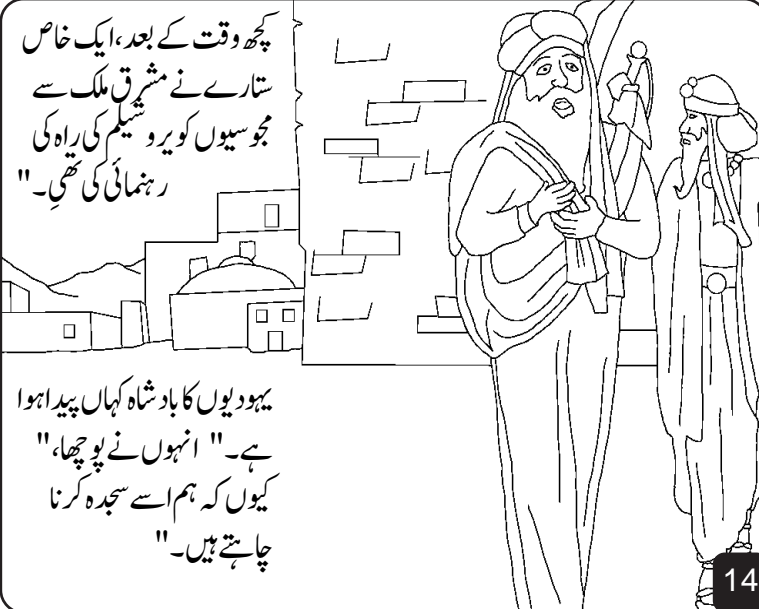 کچھ وقت کے بعد، ایک خاص
ستارے نے مشرق ملک سے
مجوسیوں کو یروشیلم کی راہ کی
رہنمائی کی تھیِ۔"
یہودیوں کا بادشاہ کہاں پیدا ہوا
ہے۔" انہوں نے پوچھا،"
کیوں کہ ہم اسے سجدہ کرنا
چاہتے ہیں۔"
14